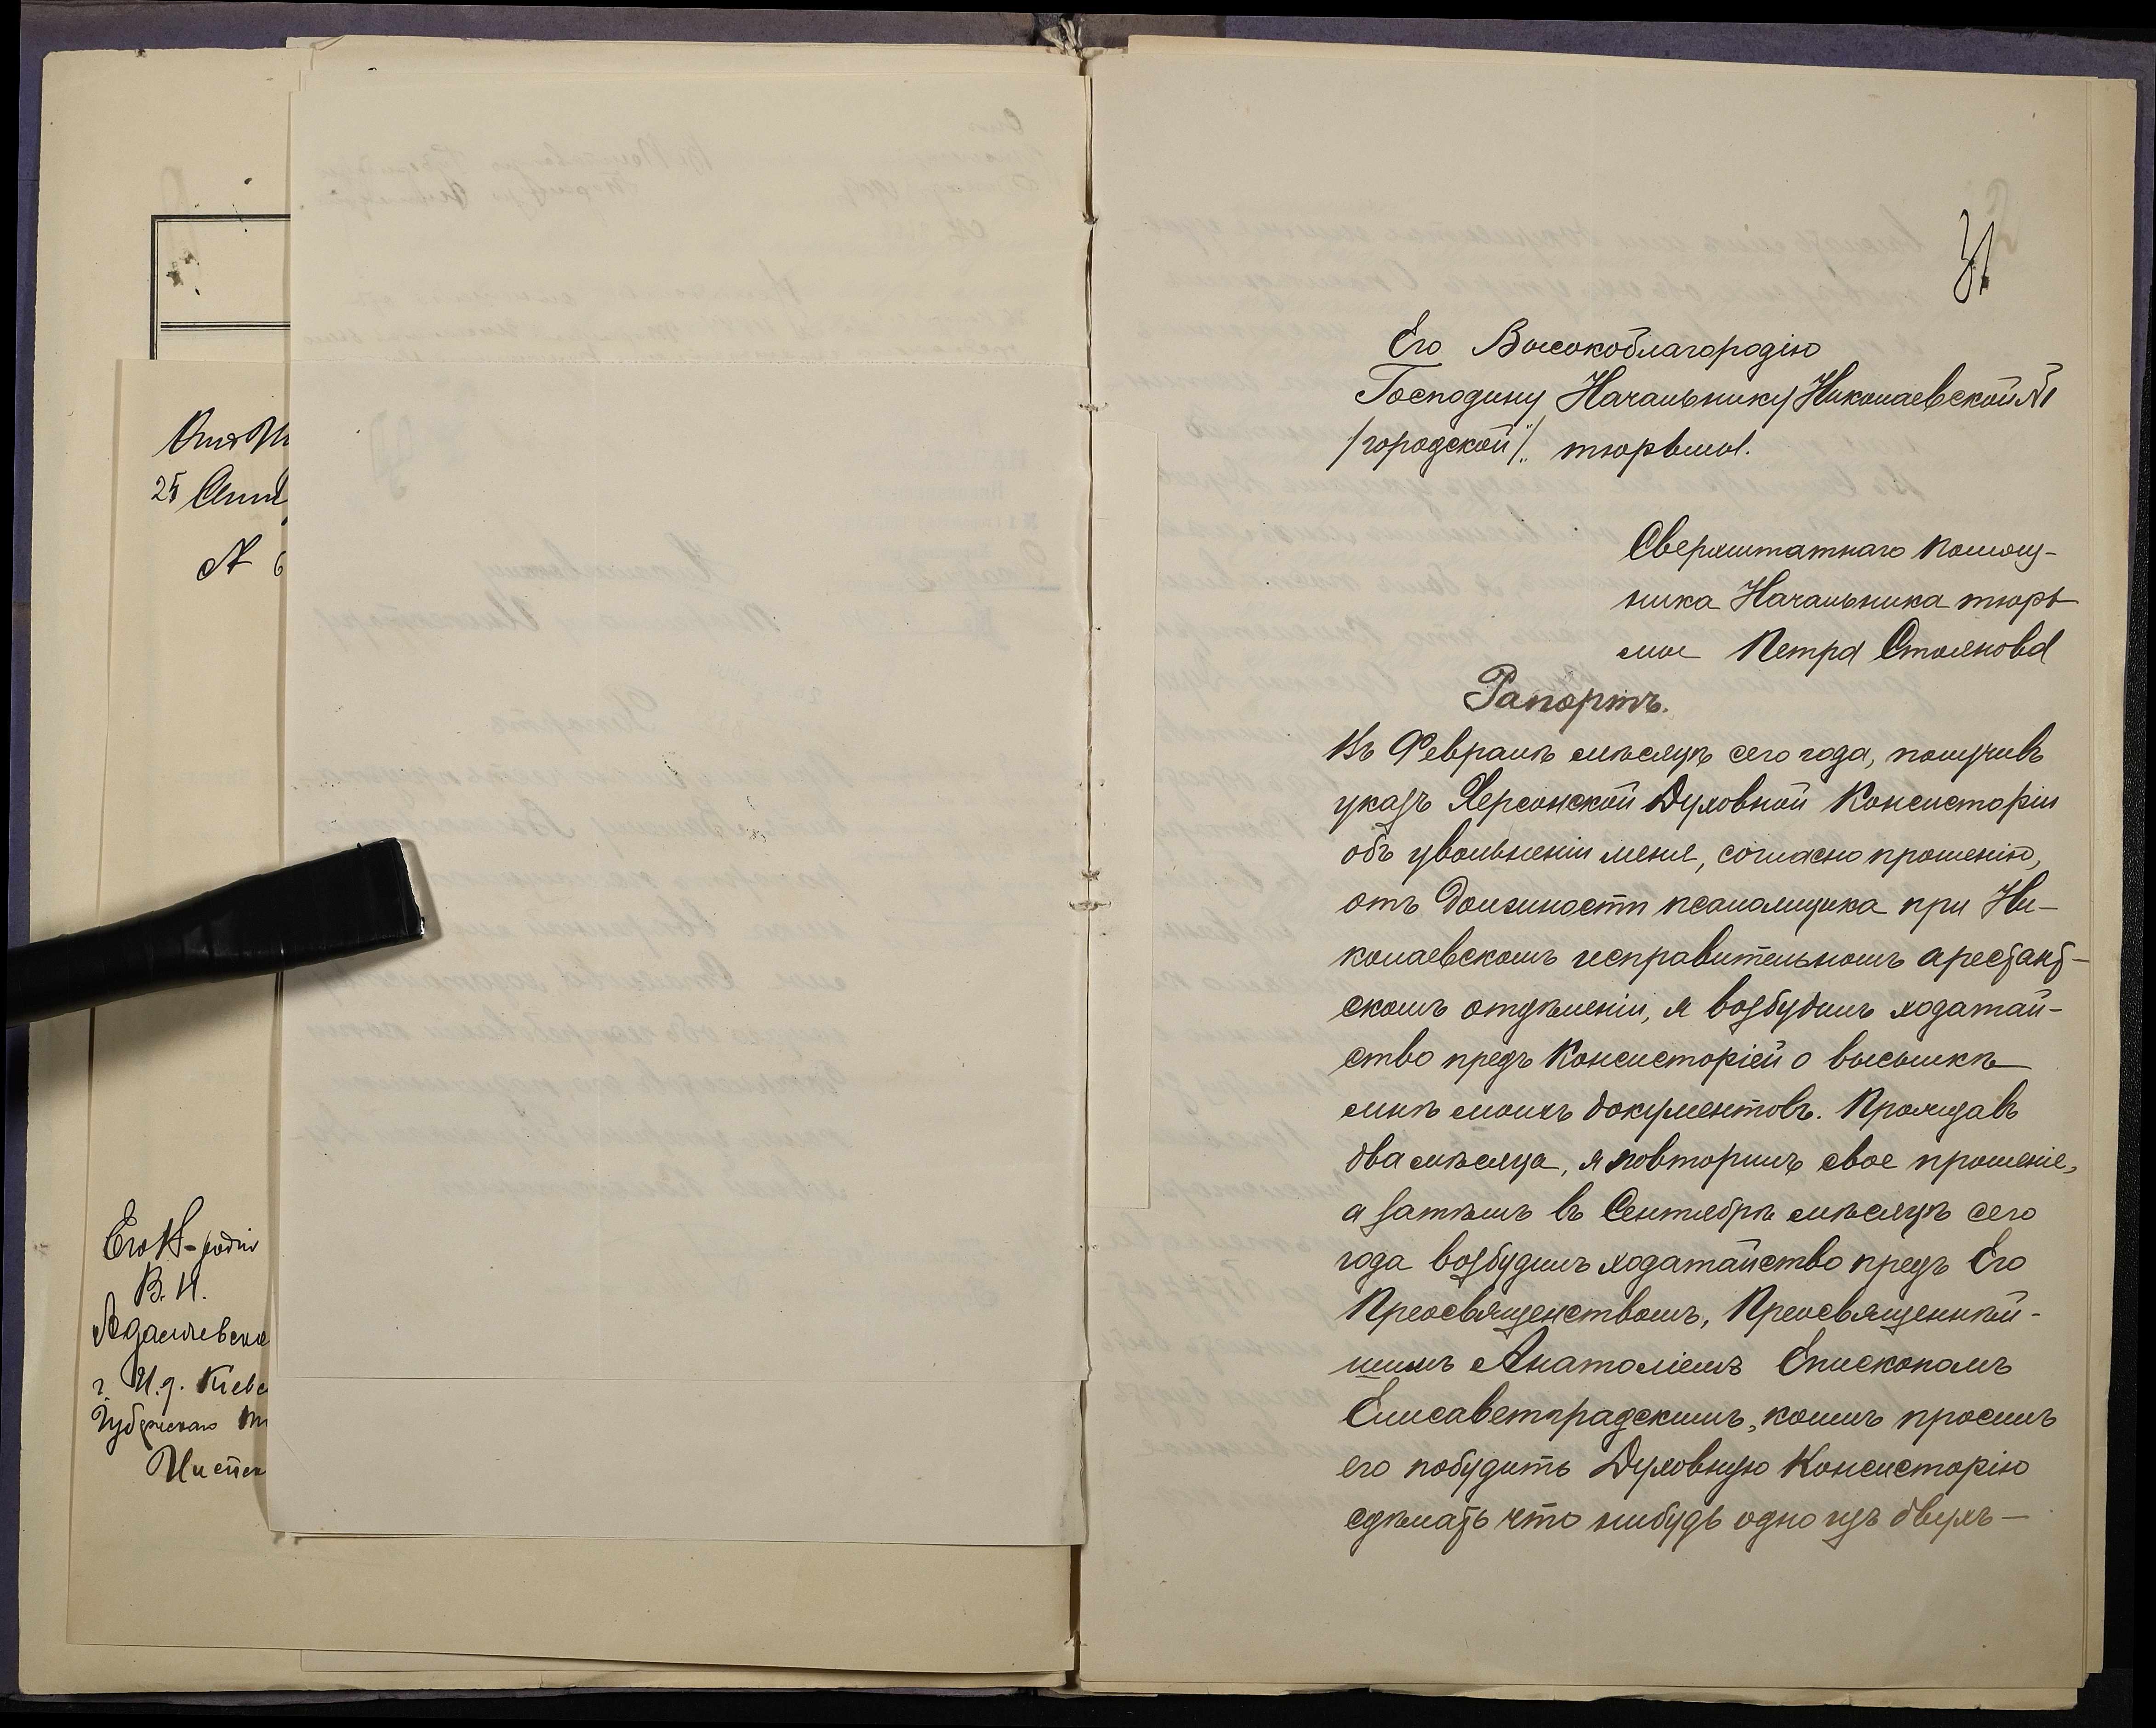 25
№ 6
Его
В. И.
г. И. д. Киев
Губернскаго
31
Его Высокоблагородію
Господину Начальнику Николаевской №1
/городской/ тюрьмы.
Сверхштатнаго помощ-
ника Начальника тюрь
мы Петра Стоянова
Рапортъ.
Въ Февралѣ мѣсяцѣ сего года, получивъ
указъ Херсонской Духовной Консисторіи
объ увольненіи меня, согласно прошенію,
отъ должности псаломщика при Ни-
колаевскомъ исправительномъ арестант-
скомъ отдѣленіи, я возбудилъ ходатай-
ство предъ Консисторіей о высылкѣ
мнѣ моихъ документовъ. Прождавъ
два мѣсяца, я повторилъ свое прошеніе,
а затѣмъ въ Сентябрѣ мѣсяцѣ сего
года возбудилъ ходатайство предъ Его
Преосвященствомъ, Преосвященнѣй-
шимъ Анатоліемъ Епископомъ
Елисаветградскимъ, коимъ просилъ
его побудить Духовную Консисторію
сдѣлать что нибудь одно изъ двухъ—